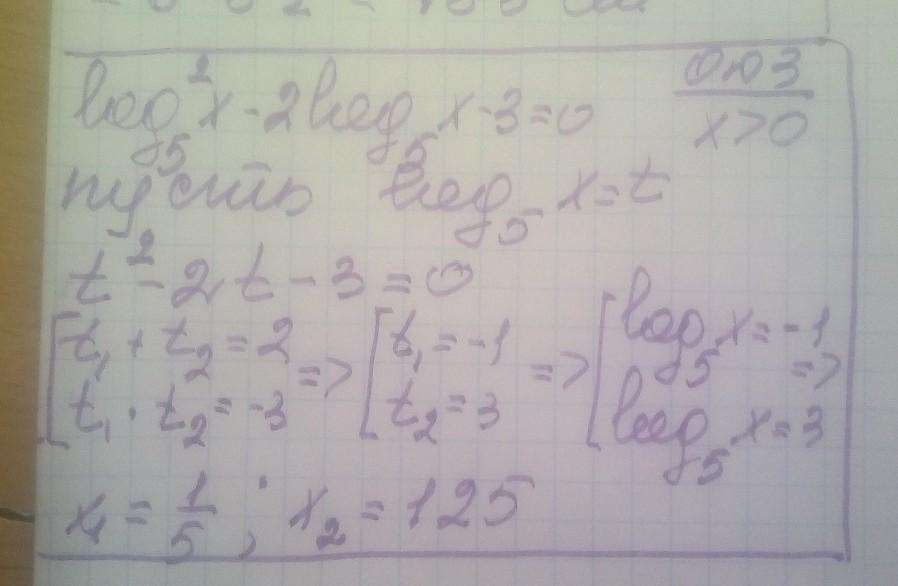 log₅²x - 2log₅x - 3 = 0
ОДЗ
x > 0
пусть log₅x = t
t² - 2t - 3 = 0
[t₁ + t₂ = 2
t₁ · t₂ = -3 => [t₁ = -1
t₂ = 3 => [log₅x = -1
log₅x = 3 =>
x₁ = 1/5 ; x₂ = 125